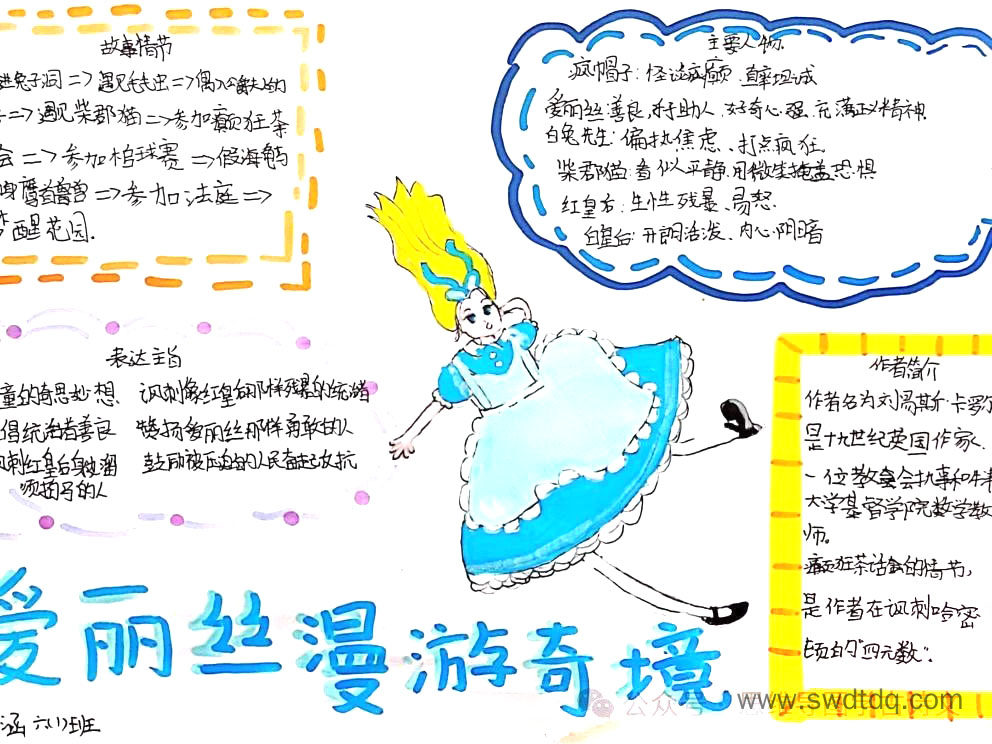 故事情节
进兔子洞=>遇见毛毛虫=>偶入公爵夫人的
=>遇见柴郡猫=>参加癫狂茶
会=>参加槌球赛=>假海龟
鹰首兽=>参加法庭=>
梦醒花园.
主要人物
疯帽子:怪诞疯癫、直率坦诚
爱丽丝:善良、乐于助人、好奇心强、充满正义精神
白兔先生:偏执焦虑、打点疯狂
柴郡猫:看似平静,用微笑掩盖恐惧
红皇后:生性残暴、易怒.
白皇后:开朗活泼、内心阴暗
表达主旨
童的奇思妙想、讽刺像红皇后那样残暴的统治
倡统治者善良 赞扬爱丽丝那样勇敢的人
讽刺红皇后身边溜 鼓励被压迫的人民奋起反抗
须拍马的人
作者简介
作者名为刘易斯·卡罗尔
是十九世纪英国作家、
一位教会执事和牛津
大学基督学院数学教
师.
癫狂茶话会的情节,
是作者在讽刺哈密
顿的"四元数".
爱丽丝漫游奇境
涵 六(1)班
公众号
www.swdtdq.com